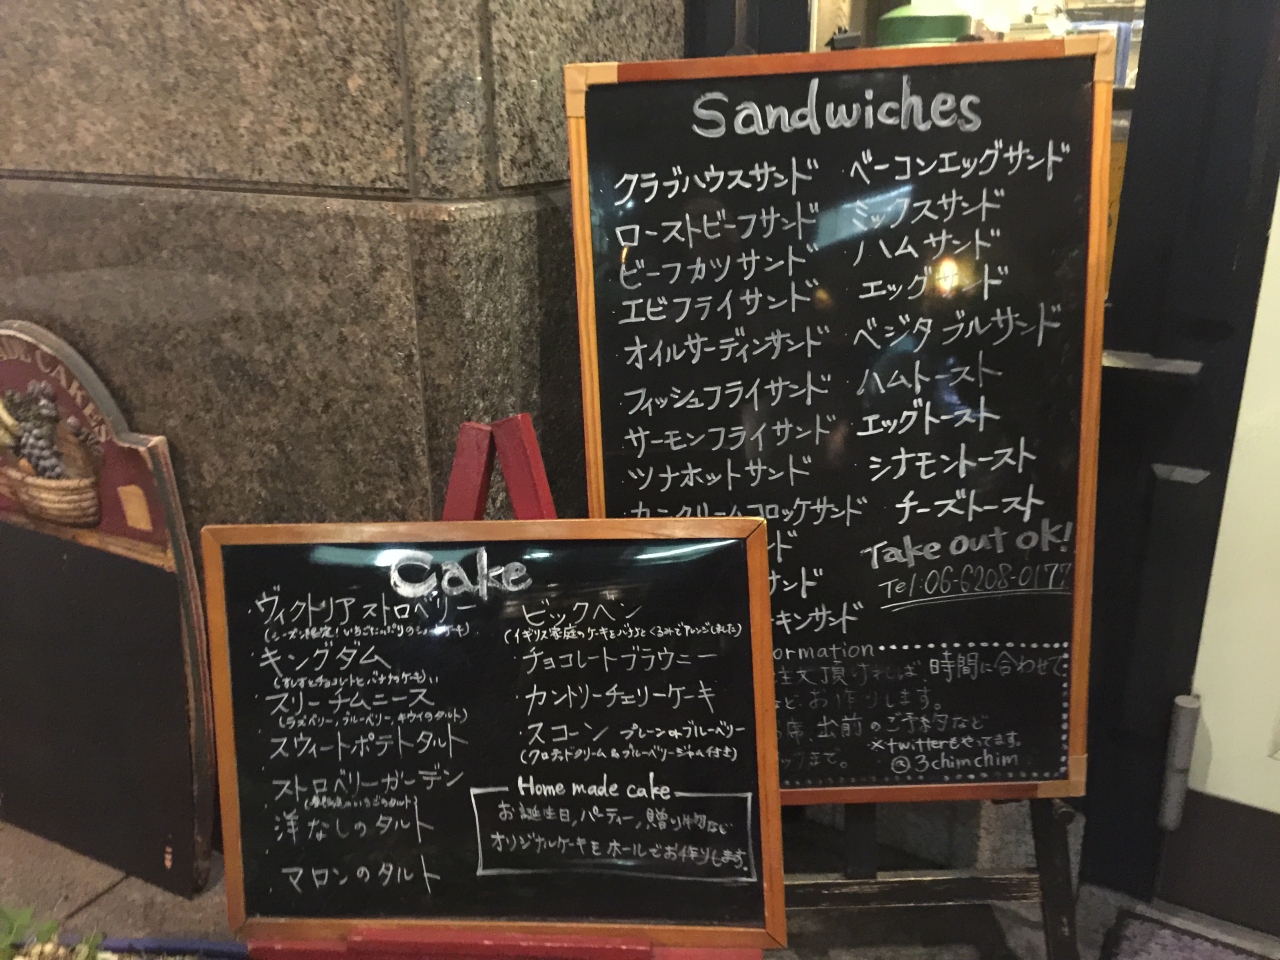 CAKES
Sandwiches
クラブハウスサンド
ローストビーフサンド
ビーフカツサンド
エビフライサンド
オイルサーディンサンド
フィッシュフライサンド
サーモンフライサンド
ツナホットサンド
カニクリームコロッケサンド
ド
サンド
キンサンド
ベーコンエッグサンド
ミックスサンド
ハムサンド
エッグサンド
ベジタブルサンド
ハムトースト
エッグトースト
シナモントースト
チーズトースト
Take out ok!
Tel:06-6208-0177
ormation
注文頂ければ 時間に合わせて
など お作りします。
席、出前のご予約など
※twitterもやってます。
まで。
@3chimchim
Cake
・ヴィクトリアストロベリー
(シーズン限定!いちごたっぷりのショートケーキ)
・キングダム
チョコレートとバナナのケーキ
・スリーチムニース
(ラズベリー、ブルーベリー、キウイのタルト)
・スウィートポテトタルト
・ストロベリーガーデン
いちごのタルト)
・洋なしのタルト
・マロンのタルト
・ビックベン
(イギリス家庭のケーキをバナナとくるみでアレンジしました)
・チョコレートブラウニー
・カントリーチェリーケーキ
・スコーン プレーンorブルーベリー
(クロテッドクリーム&ブルーベリージャム付き)
Home made cake
お誕生日,パーティー,贈り物など
オリジナルケーキをホールでお作りします。